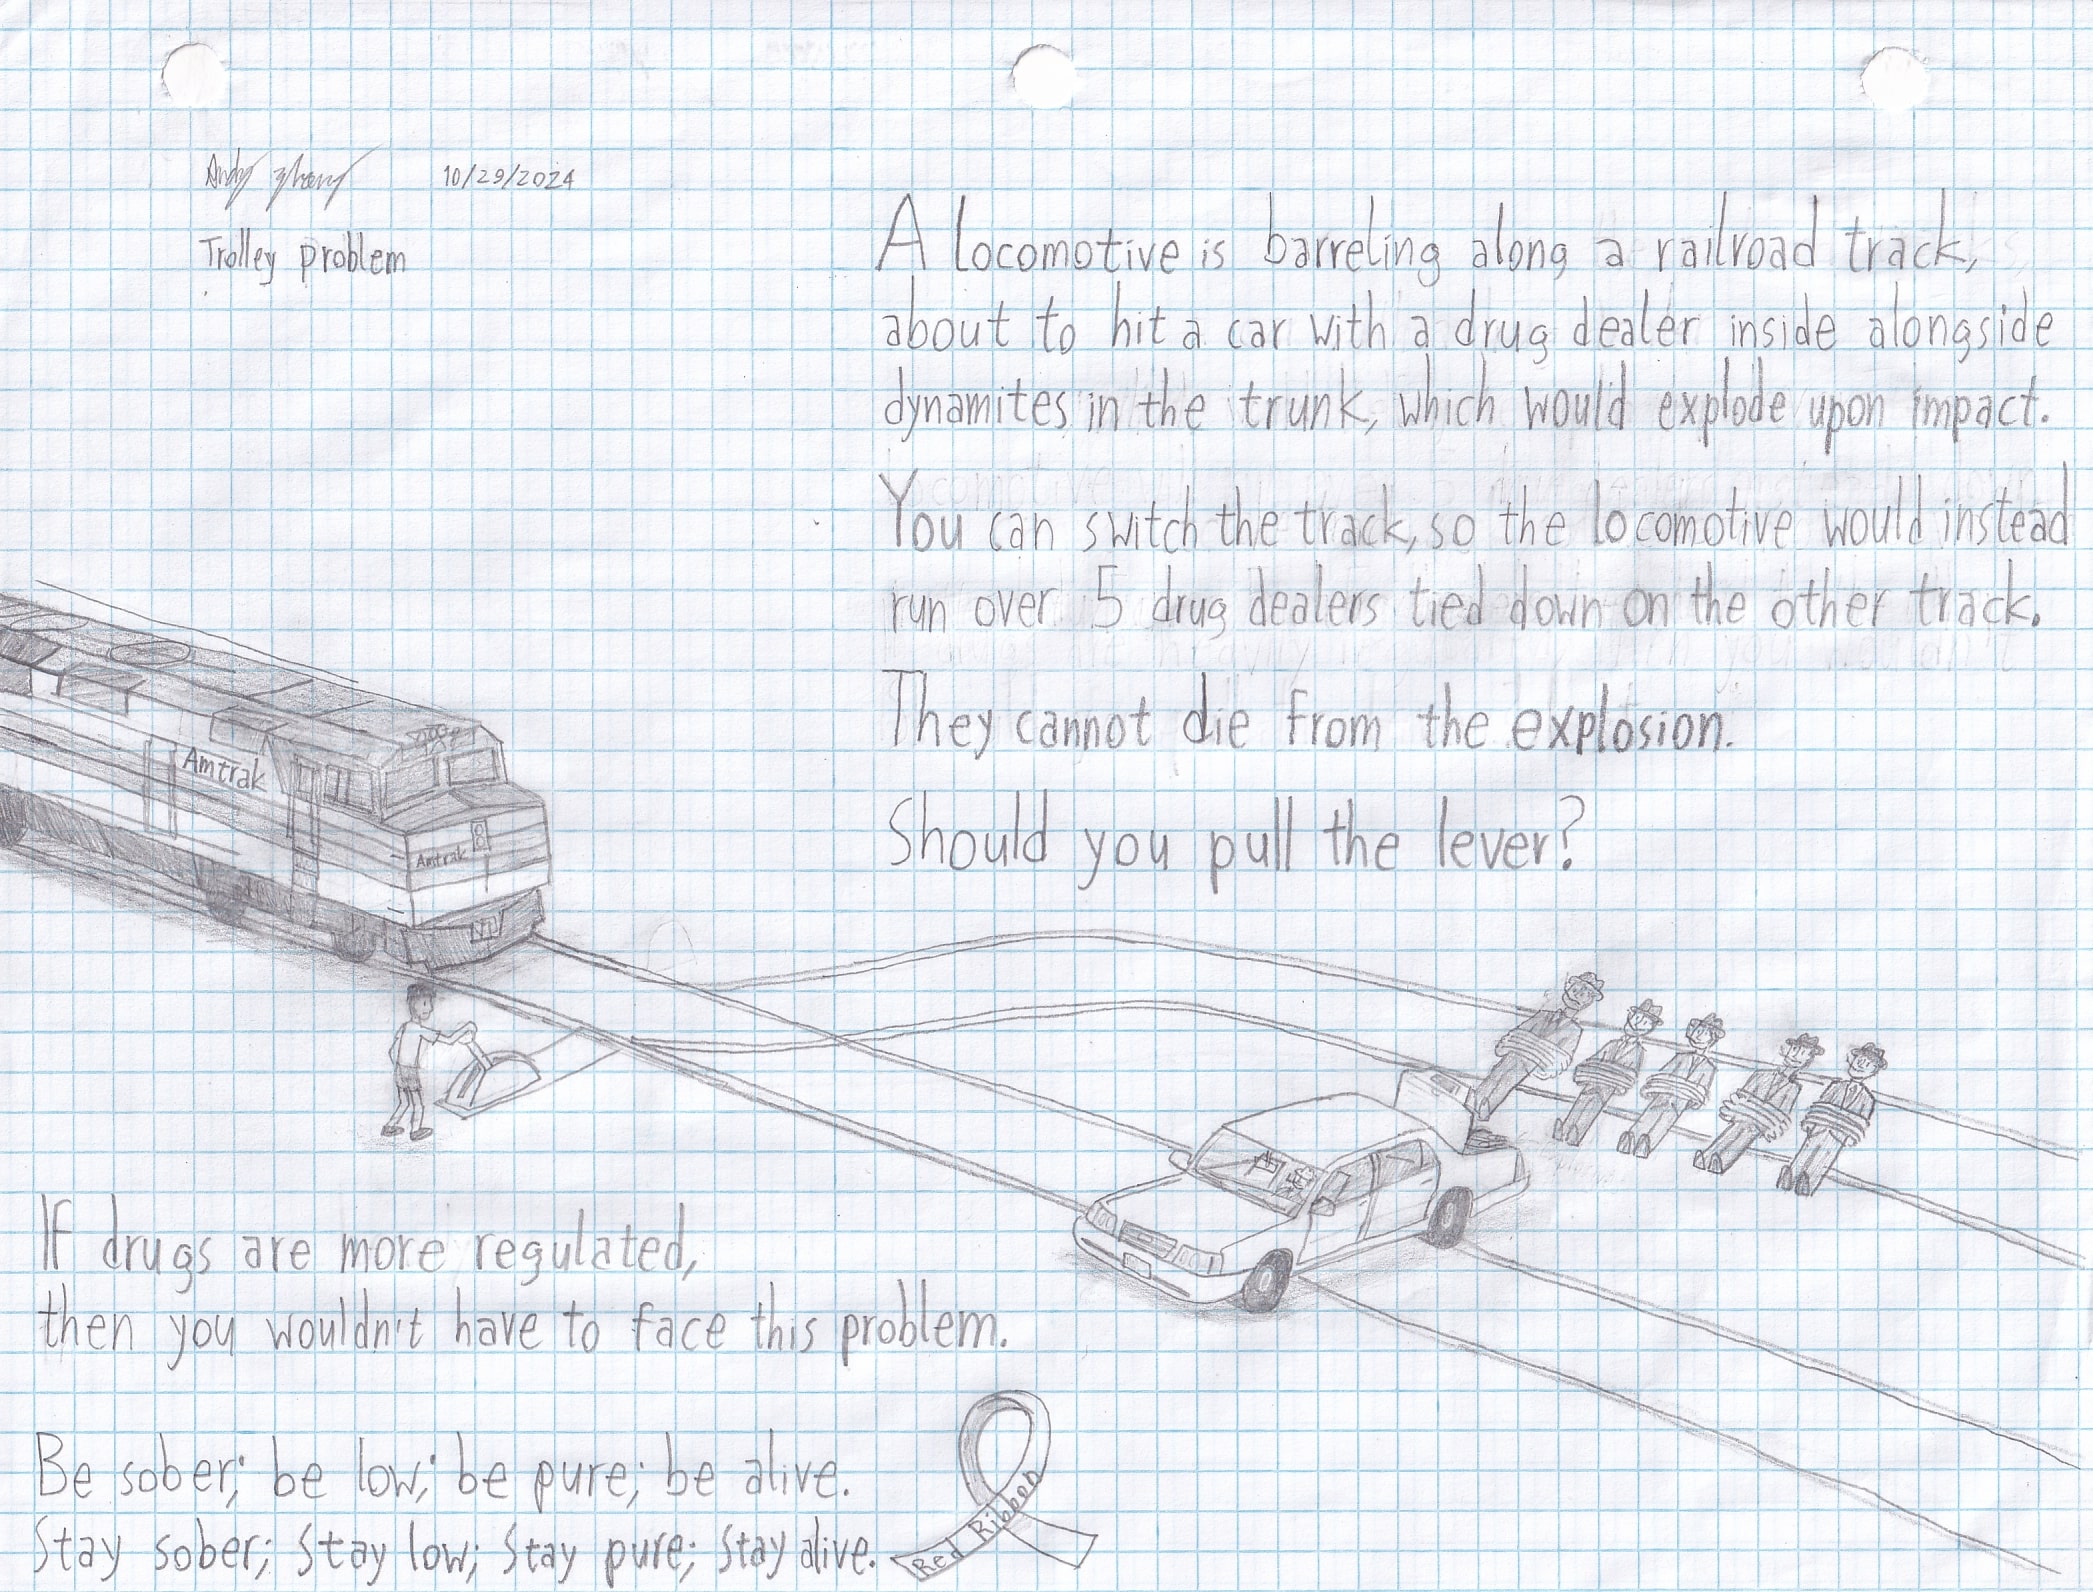 Andy Zhang 10/29/2024
Trolley problem
A locomotive is barreling along a railroad track,
about to hit a car with a drug dealer inside alongside
dynamites in the trunk, which would explode upon impact.
You can switch the track, so the locomotive would instead
run over 5 drug dealers tied down on the other track.
They cannot die from the explosion.
Should you pull the lever?
Amtrak
Amtrak
If drugs are more regulated,
then you wouldn't have to face this problem.
Be sober; be low; be pure; be alive.
Stay sober; Stay low; Stay pure; Stay alive.
Red Ribbon